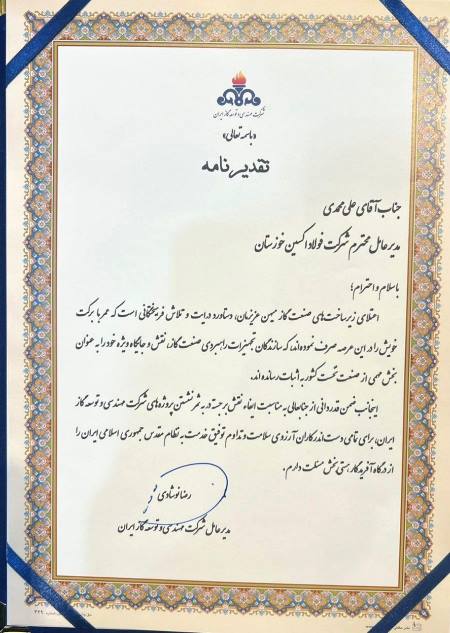 شرکت مهندسی و توسعه گاز ایران
«باسمه تعالی»
تقدیرنامه
جناب آقای علی محمدی
مدیرعامل محترم شرکت فولاد اکسین خوزستان
باسلام و احترام؛
اعتلای زیرساخت‌های صنعت گاز میهن عزیزمان، دستاورد درایت و تلاش فرهیختگانی است که عمر با برکت
خویش را در این عرصه صرف نموده‌اند، که سازندگان تجهیزات راهبردی صنعت گاز، نقش و جایگاه ویژه خود را به عنوان
بخش مهمی از صنعت نفت کشور به اثبات رسانده‌اند.
اینجانب ضمن قدردانی از جنابعالی به مناسبت ایفاء نقش برجسته در به ثمر نشستن پروژه‌های شرکت مهندسی و توسعه گاز
ایران، برای تمامی دست اندرکاران آرزوی سلامت و تداوم توفیق خدمت به نظام مقدس جمهوری اسلامی ایران را
از درگاه آفریدگار هستی بخش مسئلت دارم.
رضا نوشادی
مدیرعامل شرکت مهندسی و توسعه گاز ایران